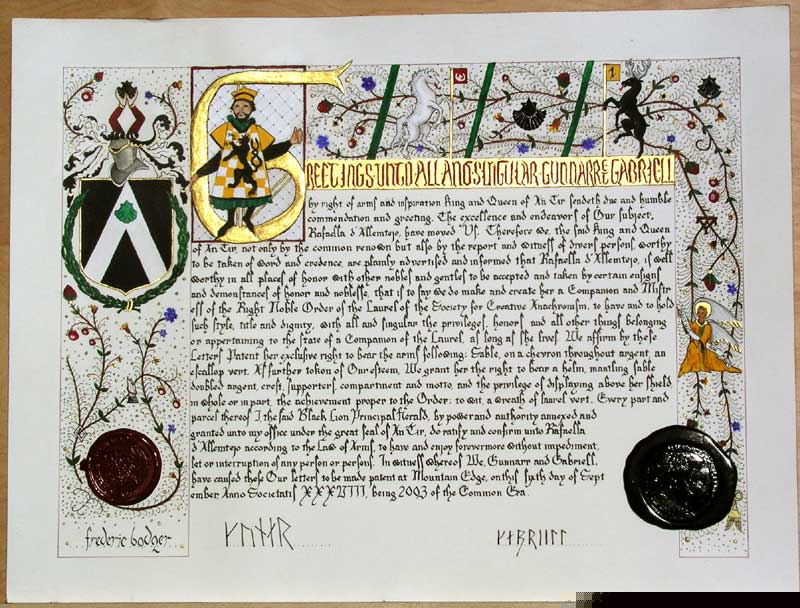 GREETINGS UNTO ALL AND SINGULAR GUNNARR & GABRIELL
by right of arms and inspiration King and Queen of An Tir sendeth due and humble
commendation and greeting. The excellence and endeavors of Our subject,
Rafaella d'Allemtejo, have moved Us. Therefore We, the said King and Queen
of An Tir, not only by the common renown but also by the report and witness of divers persons worthy
to be taken of word and credence, are plainly advertised and informed that Rafaella d'Allemtejo, is well
worthy in all places of honor with other nobles and gentles to be accepted and taken by certain ensigns
and demonstances of honor and noblesse, that is to say We do make and create her a Companion and Mistr
ess of the Right Noble Order of the Laurel of the Society for Creative Anachronism, to have and to hold
such style, title and dignity, with all and singular the privileges, honors and all other things belonging
or appertaining to the state of a Companion of the Laurel, as long as she lives. We affirm by these
Letters Patent her exclusive right to bear the arms following: Sable, on a chevron throughout argent, an
escallop vert. As further token of Our esteem, We grant her the right to bear a helm, mantling sable
doubled argent, crest, supporters, compartment and motto, and the privilege of displaying above her shield,
in whole or in part, the achievement proper to the Order: to wit, a wreath of laurel vert. Every part and
parcel thereof I, the said Black Lion Principal Herald, by power and authority annexed and
granted unto my office under the great seal of An Tir, do ratify and confirm unto Rafaella
d'Allemtejo according to the Law of Arms, to have and enjoy forevermore without impediment,
let or interruption of any person or persons. In witness whereof We, Gunnarr and Gabriell,
have caused these Our letters to be made patent at Mountain Edge, on this sixth day of Sept
ember Anno Societatis XXXVIII, being 2003 of the Common Era.
frederic badger
ᚴᚢᚾᚾᚨᚱ
ᚴᚨᛒᚱᛁᛁᛚᛚ